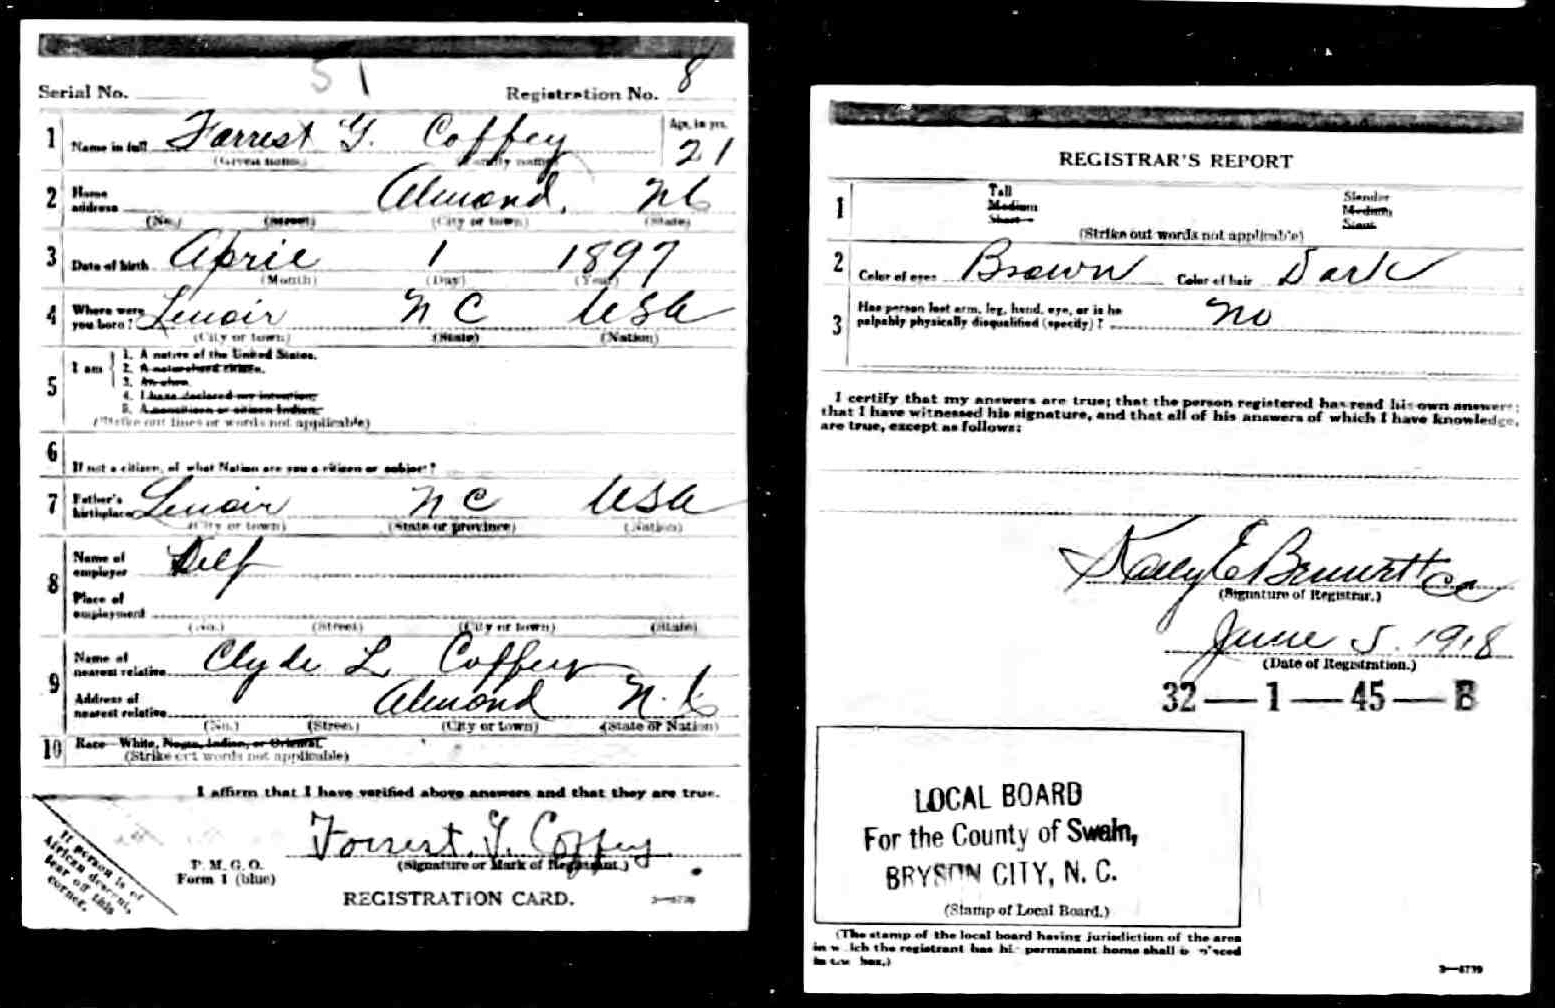 51
Serial No. Registration No. 8
1 Name in full Forrest G. Coffey Age, in yrs. 21
(Given name) (Family name)
2 Home address Almond, NC
(No.) (Street) (City or town) (State)
3 Date of birth April 1 1897
(Month) (Day) (Year)
4 Where were you born? Lenoir NC USA
(City or town) (State) (Nation)
5 I am
1. A native of the United States.
2. A naturalized citizen.
3. An alien.
4. I have declared my intention.
5. A noncitizen or citizen Indian.
(Strike out lines or words not applicable)
6 If not a citizen, of what Nation are you a citizen or subject?
7 Father's birthplace Lenoir NC USA
(City or town) (State or province) (Nation)
8 Name of employer Self
Place of employment
(No.) (Street) (City or town) (State)
9 Name of nearest relative Clyde L Coffey
Address of nearest relative Almond N.C
(No.) (Street) (City or town) (State or Nation)
10 Race—White, Negro, Indian, or Oriental.
(Strike out words not applicable)
I affirm that I have verified above answers and that they are true.
Forrest. G. Coffey
(Signature or Mark of Registrant.)
P. M. G. O.
Form 1 (blue)
REGISTRATION CARD. 3—6739
If person is of
African descent,
tear off this
corner.
REGISTRAR'S REPORT
1 Tall Slender
Medium Medium
Short Stout
(Strike out words not applicable)
2 Color of eyes Brown Color of hair Dark
3 Has person lost arm, leg, hand, eye, or is he
palpably physically disqualified (specify)? No
I certify that my answers are true; that the person registered has read his own answers;
that I have witnessed his signature, and that all of his answers of which I have knowledge,
are true, except as follows:
Kelly E Bennett
(Signature of Registrar.)
June 5. 1918
(Date of Registration.)
32—1—45—B
LOCAL BOARD
For the County of Swain,
BRYSON CITY, N. C.
(Stamp of Local Board.)
(The stamp of the local board having jurisdiction of the area
in which the registrant has his permanent home shall be placed
in this box.)
3—6739